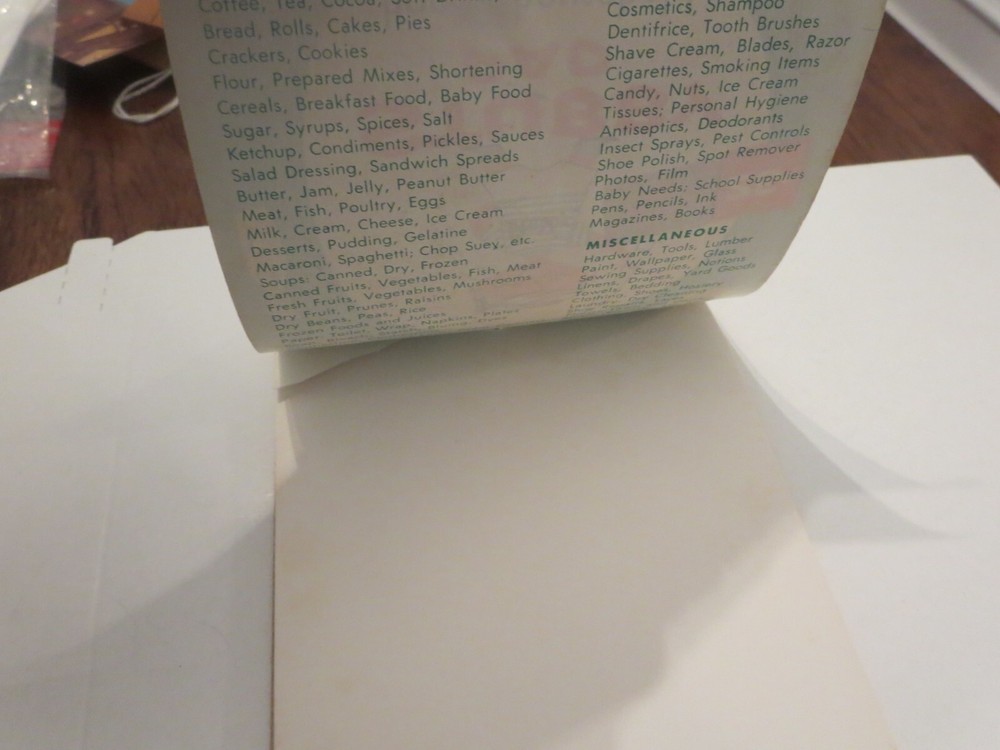 Coffee, Tea, Cocoa, Soft Drinks,
Bread, Rolls, Cakes, Pies
Crackers, Cookies
Flour, Prepared Mixes, Shortening
Cereals, Breakfast Food, Baby Food
Sugar, Syrups, Spices, Salt
Ketchup, Condiments, Pickles, Sauces
Salad Dressing, Sandwich Spreads
Butter, Jam, Jelly, Peanut Butter
Meat, Fish, Poultry, Eggs
Milk, Cream, Cheese, Ice Cream
Desserts, Pudding, Gelatine
Macaroni, Spaghetti; Chop Suey, etc.
Soups: Canned, Dry, Frozen
Canned Fruits, Vegetables, Fish, Meat
Fresh Fruits, Vegetables, Mushrooms
Dry Fruit, Prunes, Raisins
Dry Beans, Peas, Rice
Frozen Foods and Juices
Paper: Toilet, Wrap, Napkins, Plates
Cosmetics, Shampoo
Dentifrice, Tooth Brushes
Shave Cream, Blades, Razor
Cigarettes, Smoking Items
Candy, Nuts, Ice Cream
Tissues; Personal Hygiene
Antiseptics, Deodorants
Insect Sprays, Pest Controls
Shoe Polish, Spot Remover
Photos, Film
Baby Needs; School Supplies
Pens, Pencils, Ink
Magazines, Books
MISCELLANEOUS
Hardware, Tools, Lumber
Paint, Wallpaper, Glass
Sewing Supplies, Notions
Linens, Drapes, Yard Goods
Towels, Bedding
Clothing, Shoes, Hosiery